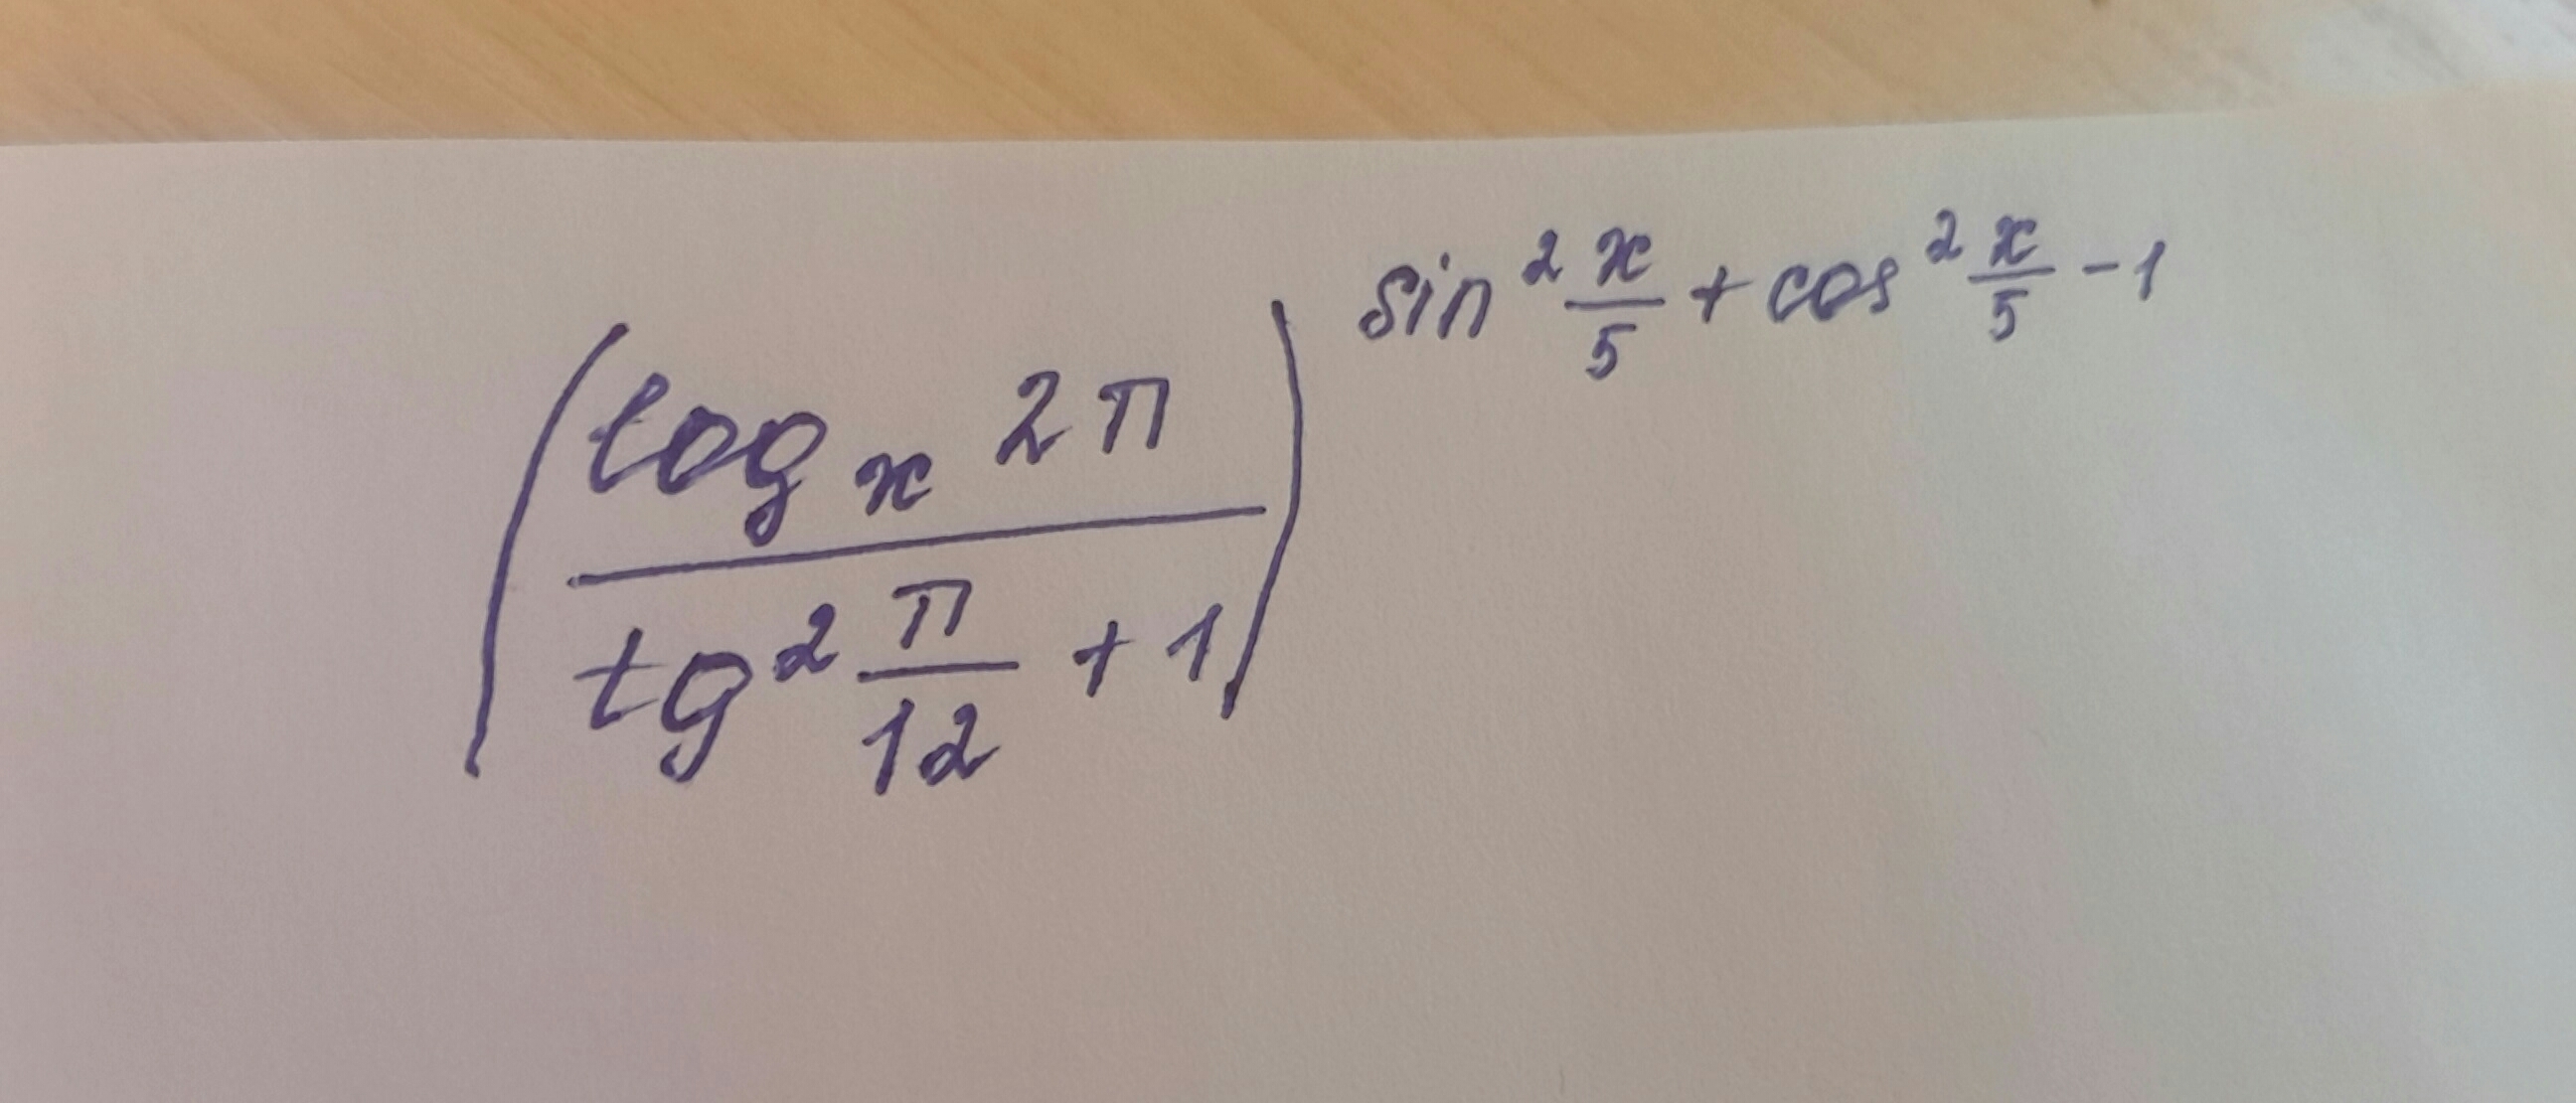 (log_x 2π / (tg² π/12 + 1))^(sin² x/5 + cos² x/5 - 1)